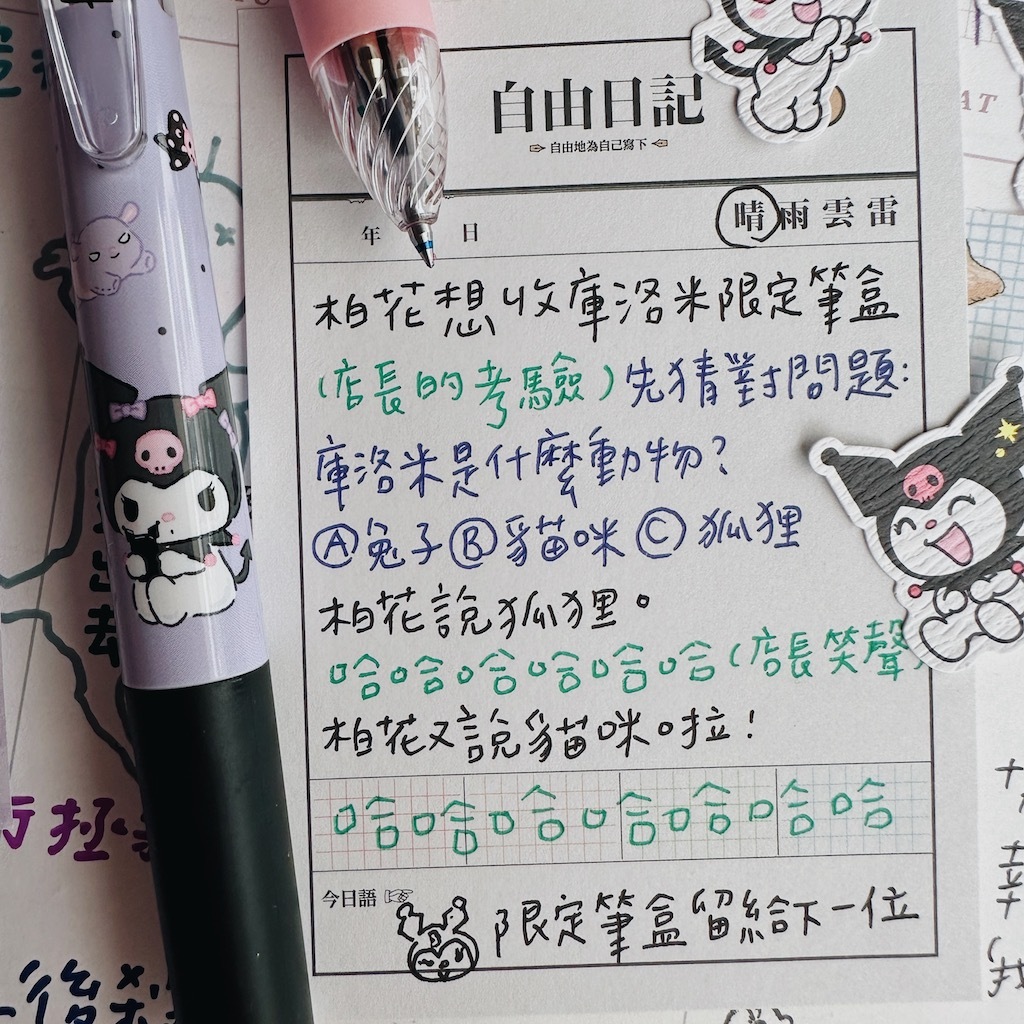 自由日記
自由地為自己寫下
年 日 晴 雨 雲 雷
柏花想收庫洛米限定筆盒
(店長的考驗)先猜對問題:
庫洛米是什麼動物?
Ⓐ兔子Ⓑ貓咪Ⓒ狐狸
柏花說狐狸。
哈哈哈哈哈哈(店長笑聲)
柏花又說貓咪啦!
哈哈哈哈哈哈哈
今日語 ☞ 限定筆盒留給下一位
AT
出
去
後